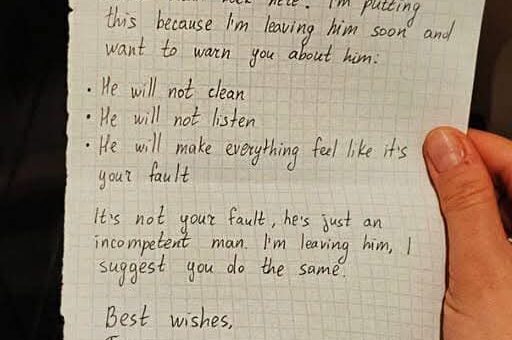 here. I'm putting
this because I'm leaving him soon and
want to warn you about him:
• He will not clean
• He will not listen
• He will make everything feel like it's
your fault
It's not your fault, he's just an
incompetent man. I'm leaving him, I
suggest you do the same.
Best wishes,